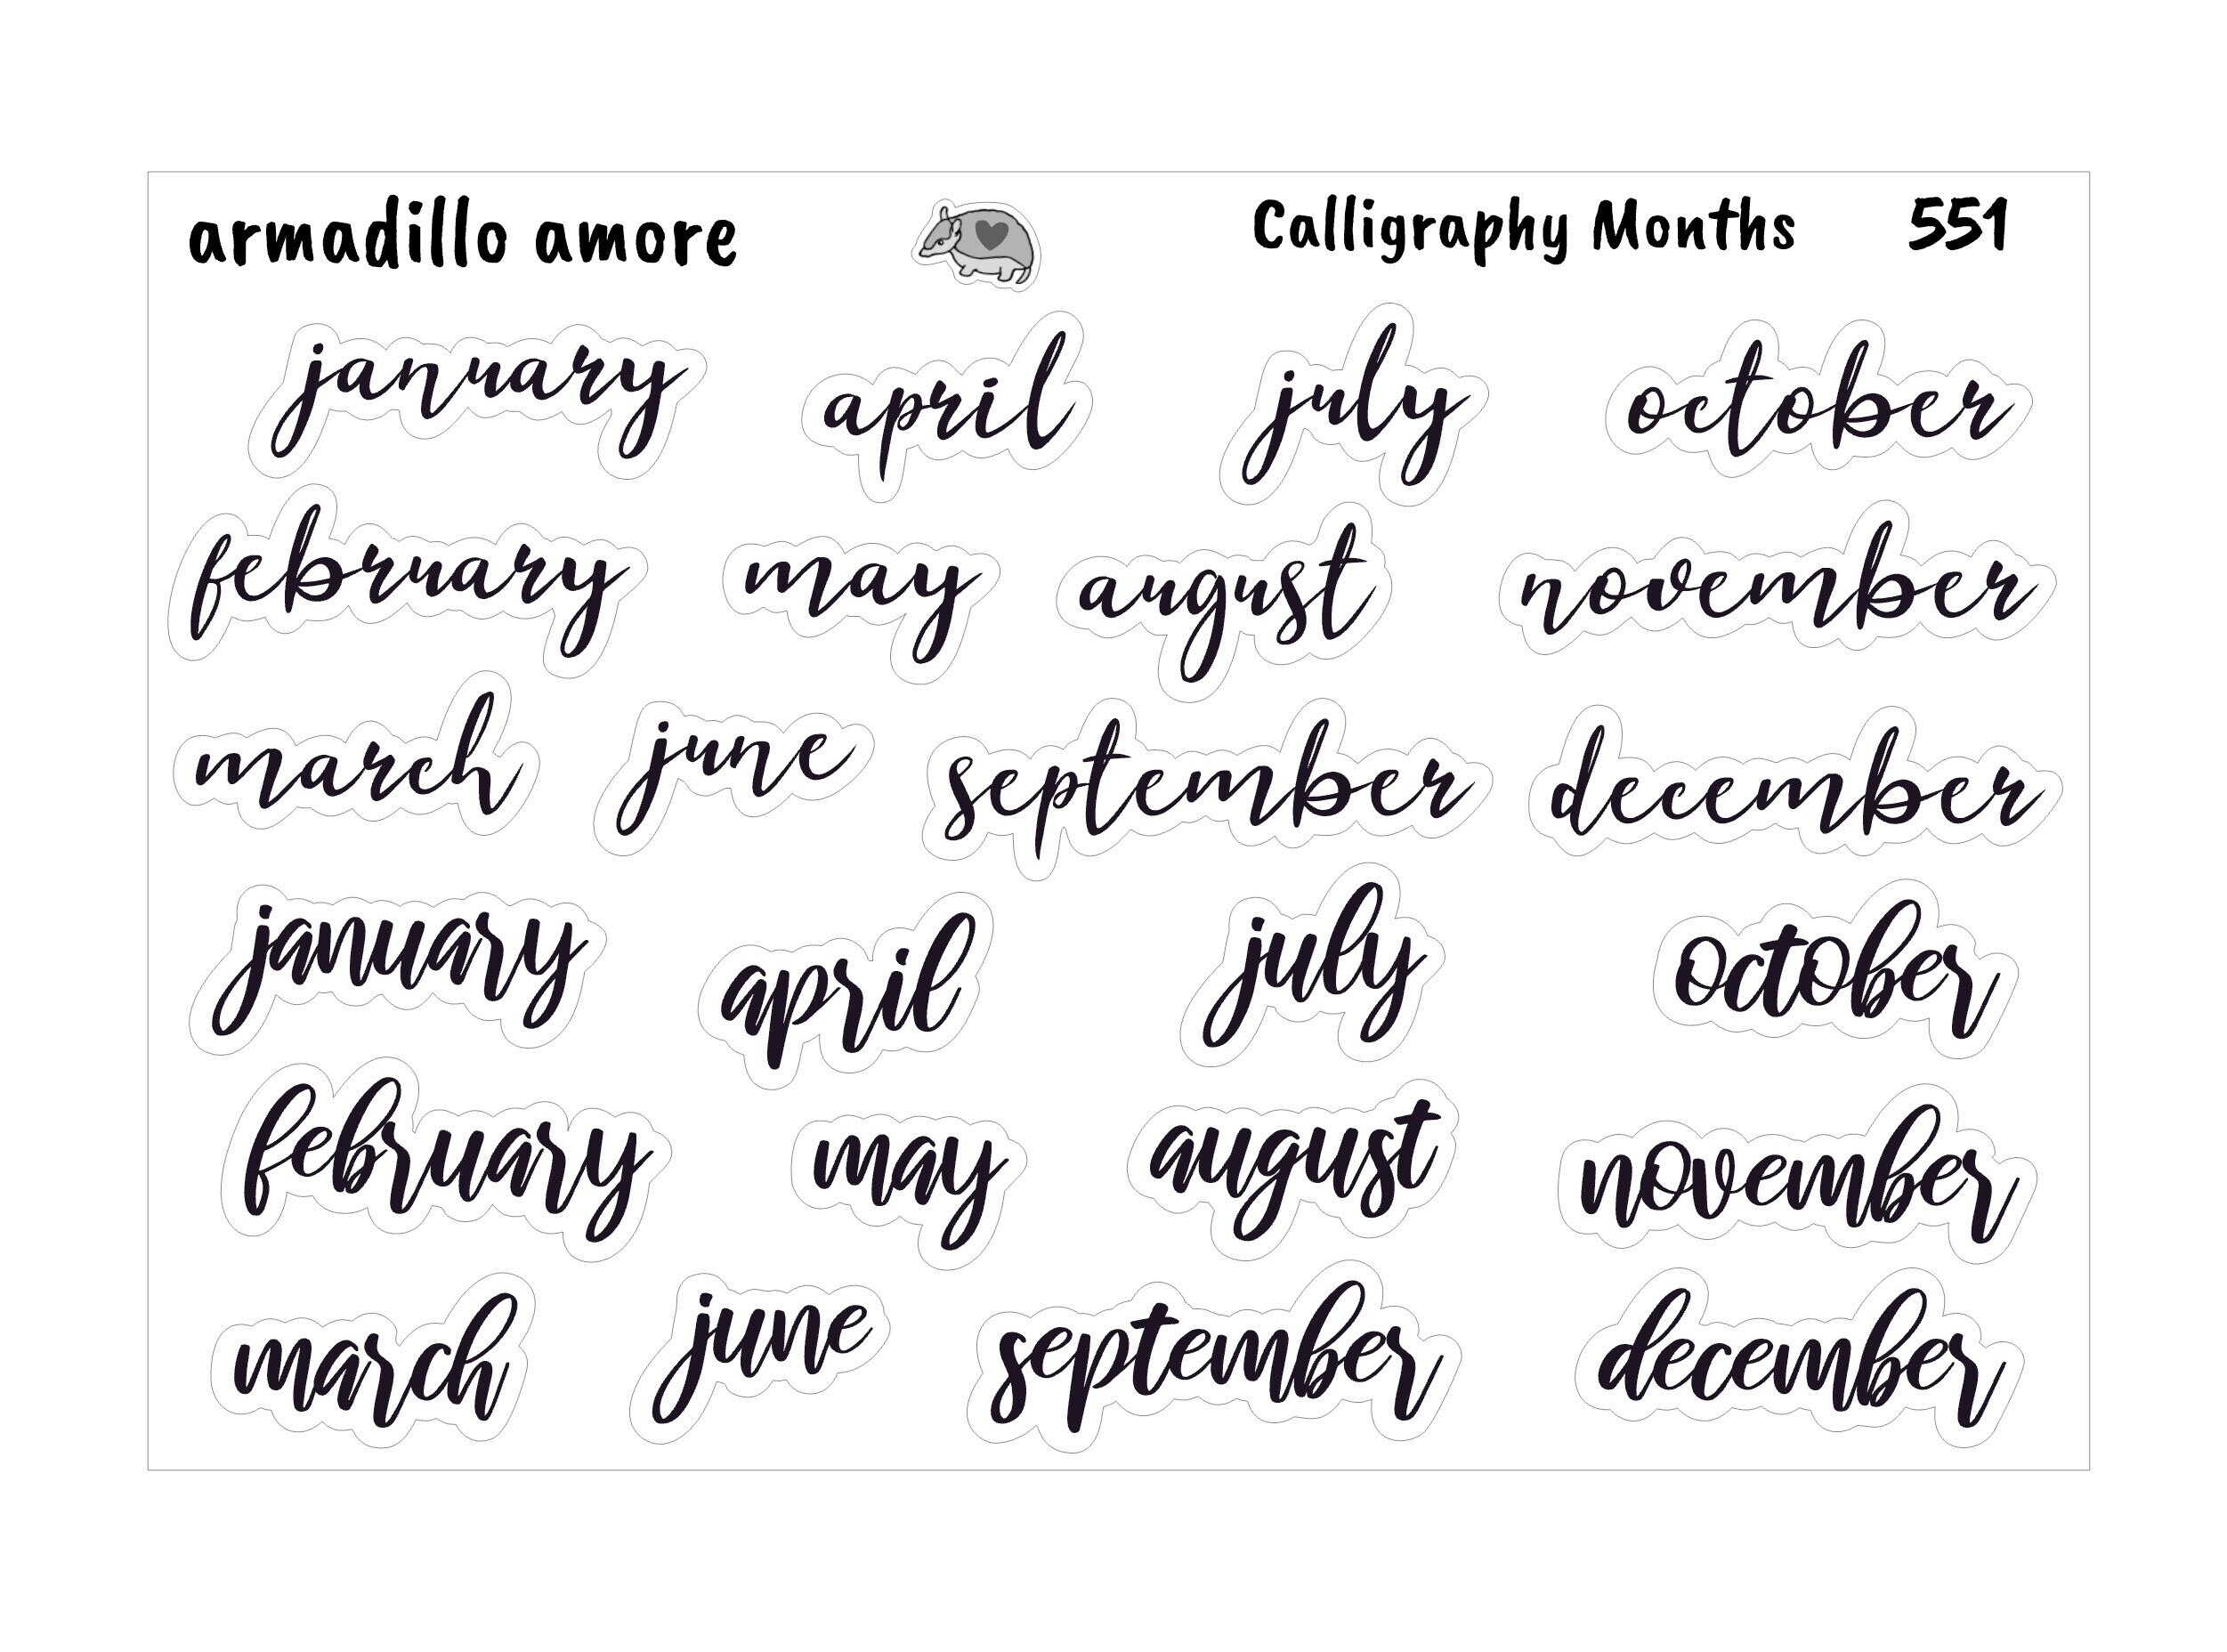 armadillo amore Calligraphy Months 551
january april july october
february may august november
march june september december
january april july october
february may august november
march june september december